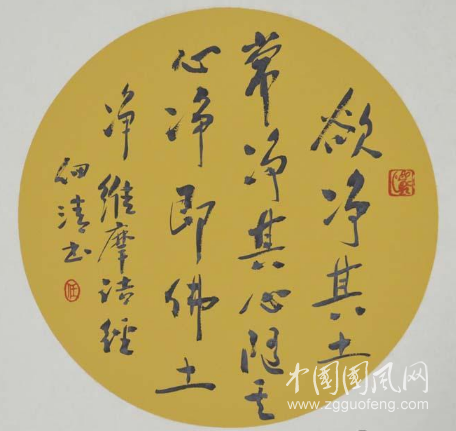 欲净其土
常净其心随其
心净即佛土
净 維摩诘經
清书
中國國风网
www.zgguofeng.com